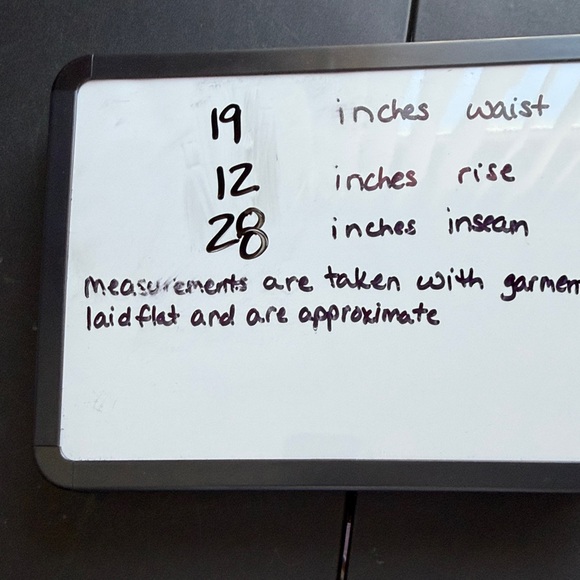 19 inches waist
12 inches rise
28 inches inseam
measurements are taken with garmen
laid flat and are approximate